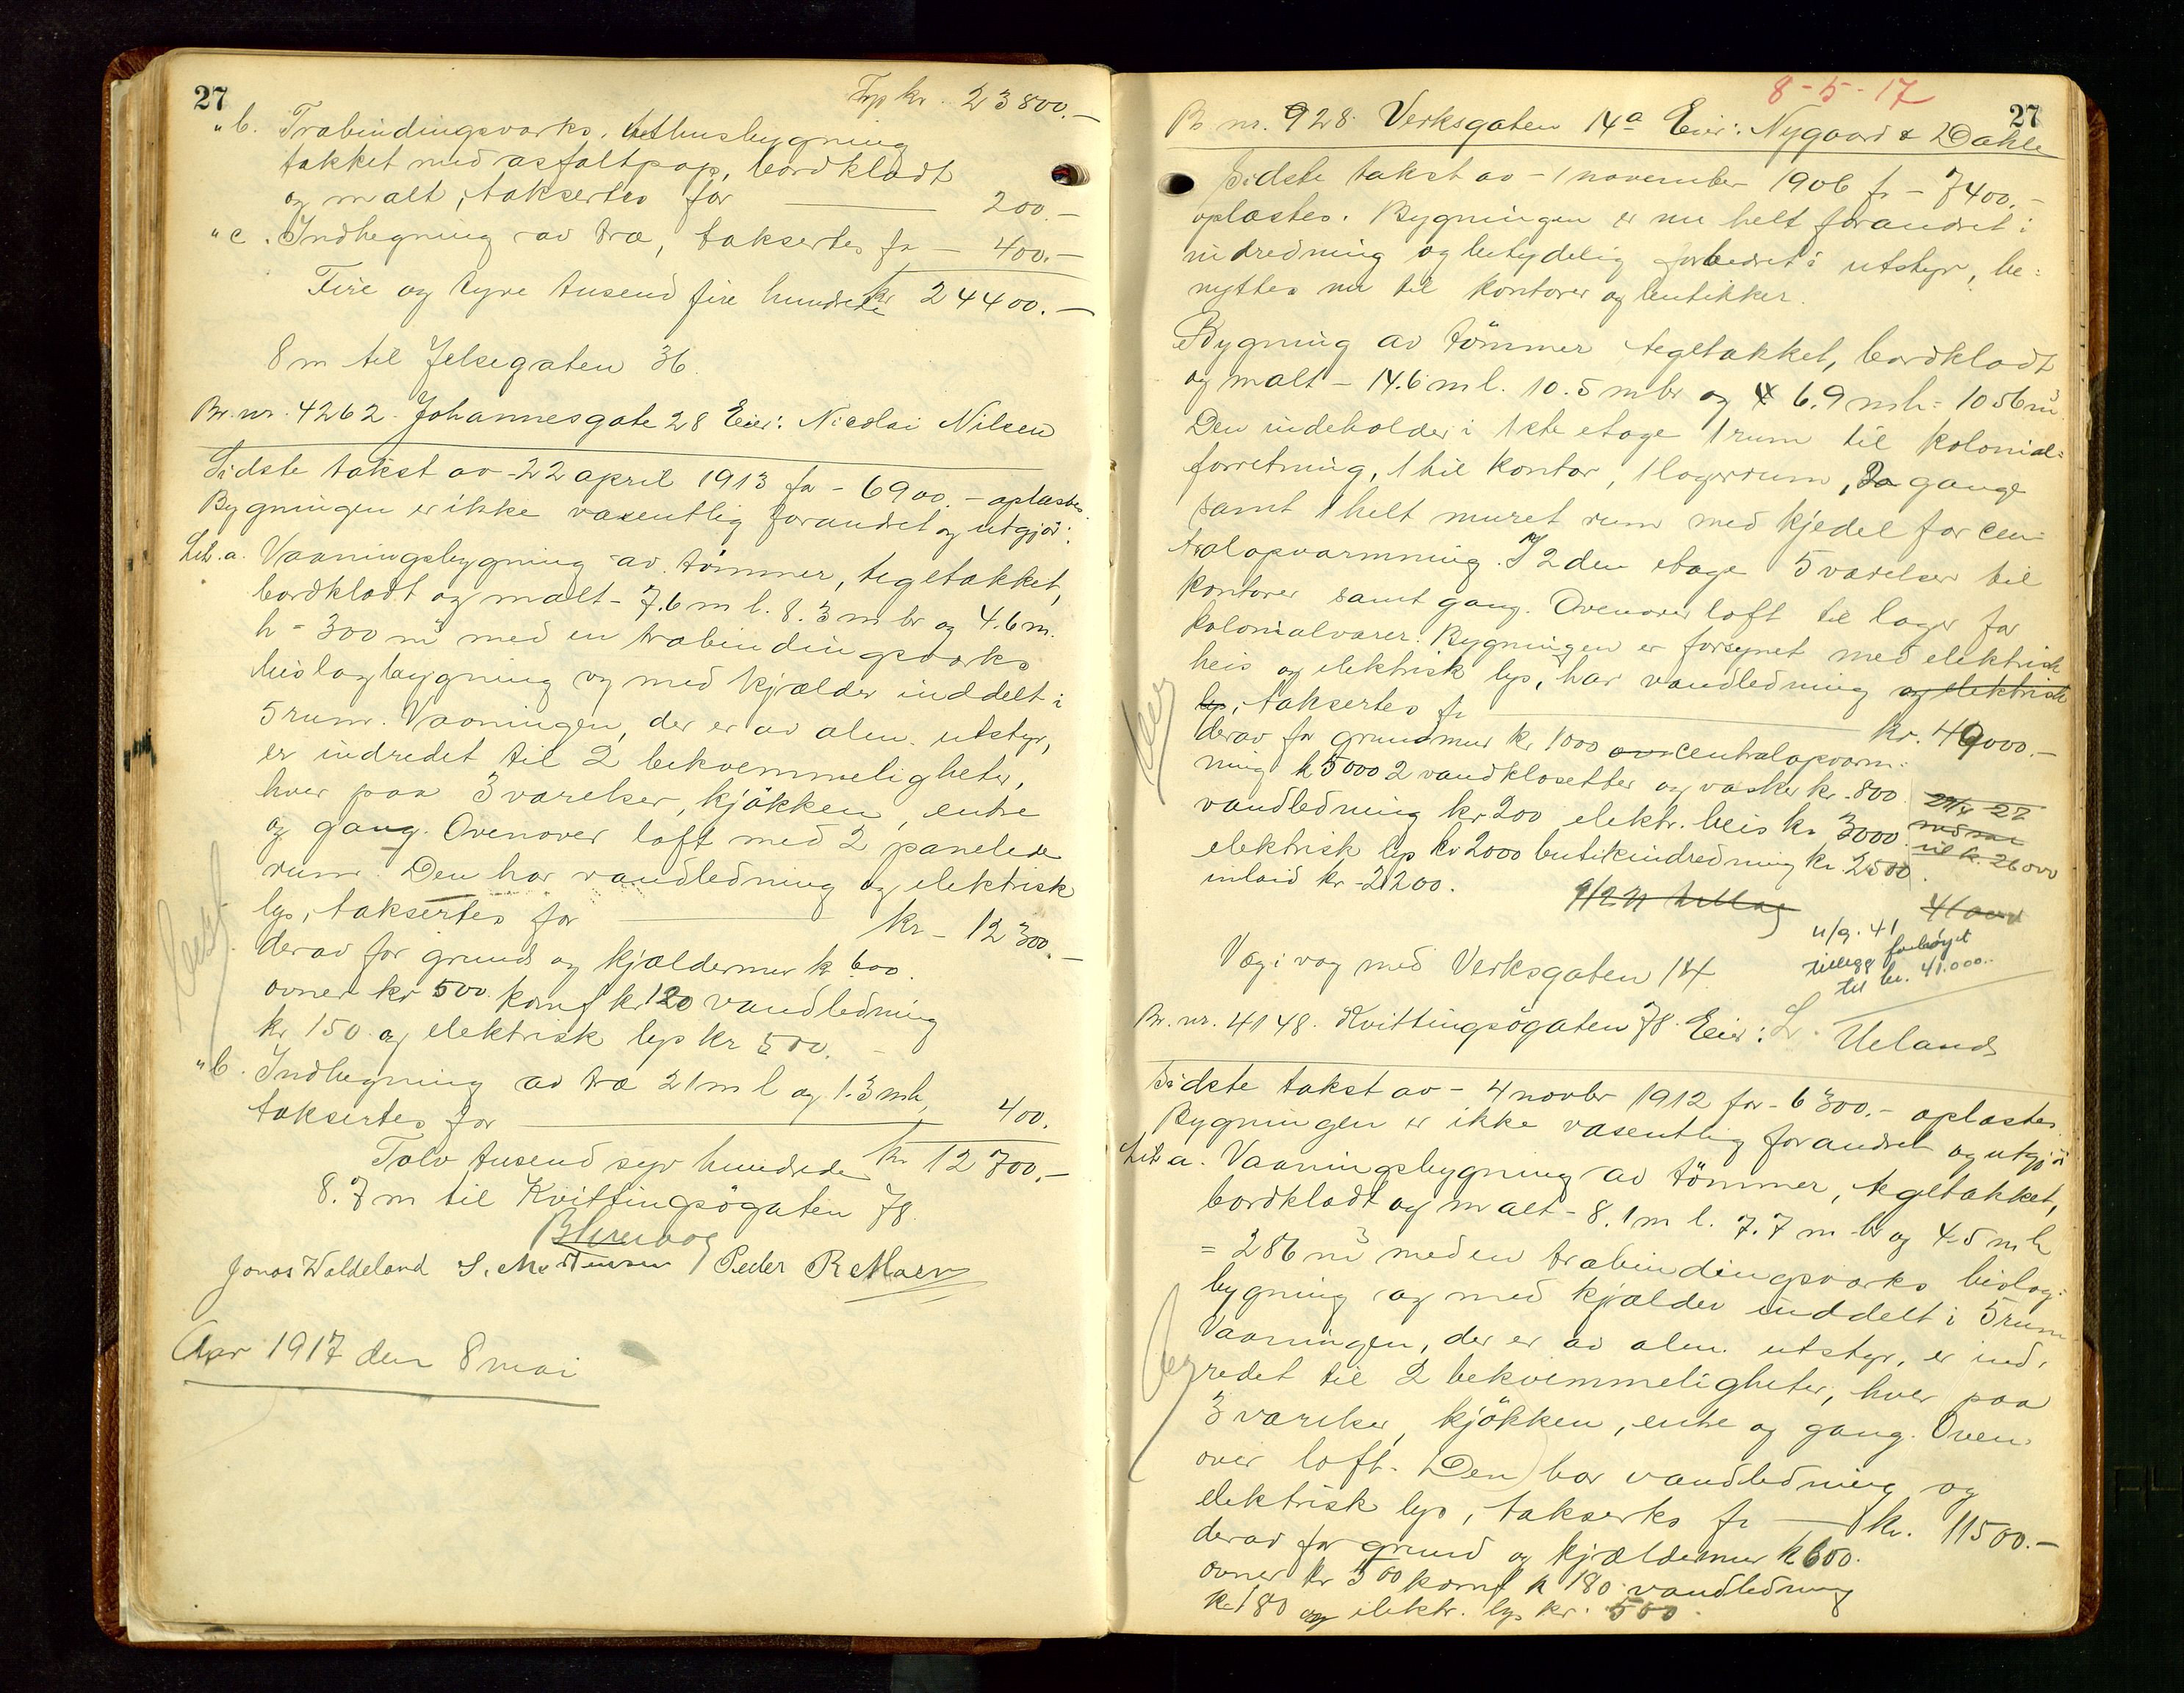 27
Trp kr. 23800.-
"b. Træbindingsværks. uthusbygning
tækket med asfaltpap, bordklædt
og malt, taksertes for 200.-
"c. Indhegning av træ, taksertes fr - 400.-
Fire og tyve tusend fire hundrede kr 24400.-
8 m til Jelsegaten 36.
Br. nr. 4262. Johannesgate 28 Eier: Nicolai Nilsen
Sidste takst av - 22 april 1913 for - 6900.- oplæstes.
Bygningen er ikke væsentlig forandret og utgjör:
Litr. a. Vaaningsbygning av tömmer, tegltækket,
bordklædt og malt - 7.6 m l. 8.3 m br og 4.6 m.
h = 300 m³ med en træbindingsværks
bislagbygning og med kjælder inddelt i
5 rum. Vaaningen, der er av alm. utstyr,
er indredet til 2 bekvemmeligheter,
hver paa 3 værelser, kjökken, entre
og gang. Ovenover loft med 2 panelede
rum. Den har vandledning og elektrisk
lys, taksertes for kr - 12300.-
derav for grund og kjældermur kr 600.
ovner kr 500. komf kr 120 vandledning
kr 150 og elektrisk lys kr 500.
"b. Indhegning av træ 21 m l og 1.3 m h,
taksertes for 400.
Tolv tusend syv hundrede kr 12700.-
8.7 m til Kvittingsögaten 78.
Jonas Waldeland S. Mortensen Peder R
Aar 1917 den 8 mai
8-5-17
27
Br nr. 928. Verksgaten 14a Eier: Nygaard & Dahle
Sidste takst av - 1 november 1906 fr - 7400.-
oplæstes. Bygningen er nu helt forandret i
indredning og betydelig forbedret i utstyr, be:
nyttes nu til kontorer og butikker.
Bygning av tömmer tegltækket, bordklædt
og malt - 14.6 m l. 10.5 m br og 6.9 m h = 1056 m³.
Den indeholder i 1ste etage 1 rum til kolonial:
forretning, 1 til kontor, 1 lagerrum, 2 gange
samt 1 helt muret rum med kjedel for cen:
tralopvarmning. I 2den etage 5 værelser til
kontorer samt gang. Ovenover loft til lager for
kolonialvarer. Bygningen er forsynet med elektrisk
heis og elektrisk lys, har vandledning og elektrisk
lys, taksertes fr kr. 40000.-
derav for grundmur kr 1000 centralopvarm:
ning kr 5000 2 vandklosetter og vasker kr. 800.
vandledning kr 200 elektr. heis kr 3000.
elektrisk lys kr 2000 butikindredning kr. 2500.
inlaid kr - 2200.
til kr. 26000
11/9. 41
tillegg forhöyet
til kr. 41.000.-
Væg i væg med Verksgaten 14.
Br. nr. 4148. Kvittingsögaten 78. Eier: L. Ueland
Sidste takst av - 4 novbr 1912 for - 6300.- oplæstes.
Bygningen er ikke væsentlig forandret og utgjör
Litr a. Vaaningsbygning av tömmer, tegltækket,
bordklædt og malt - 8.1 m l. 7.7 m br og 4.5 m h
= 286 m³ med en træbindingsværks bislag:
bygning og med kjælder inddelt i 5 rum
Vaaningen, der er av alm. utstyr, er ind:
redet til 2 bekvemmeligheter, hver paa
3 værelser, kjökken, entre og gang. Oven
over loft. Den har vandledning og
elektrisk lys, taksertes fr kr. 11500.-
derav for grund og kjældermur kr 600.
ovner kr 500 komf kr 180 vandledning
kr 180 og elektr. lys kr. 500.